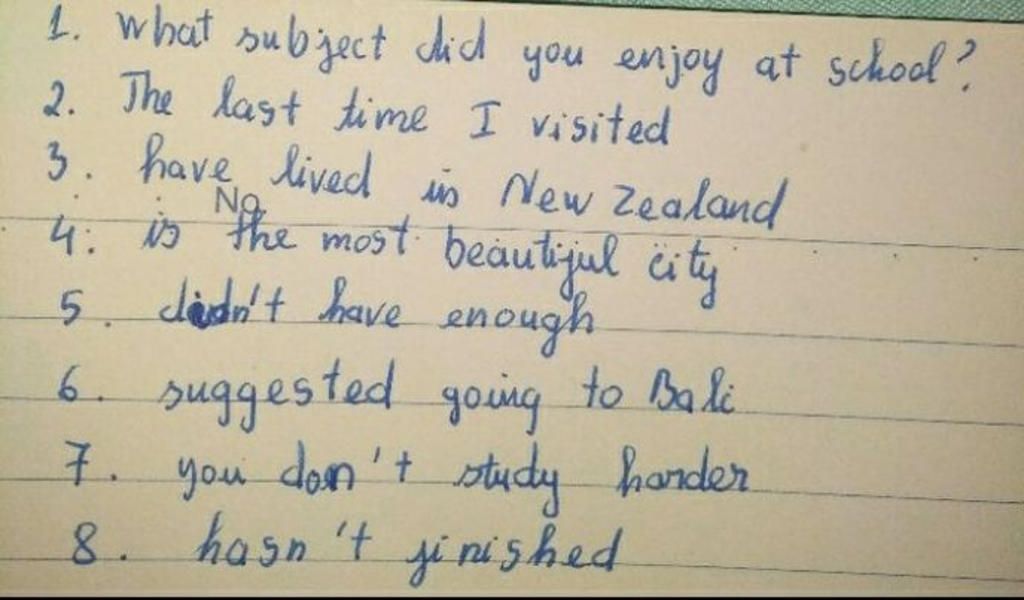 1. What subject did you enjoy at school?
2. The last time I visited
3. have lived in New Zealand
No
4. is the most beautiful city
5. didn't have enough
6. suggested going to Bali
7. you don't study harder
8. hasn't finished